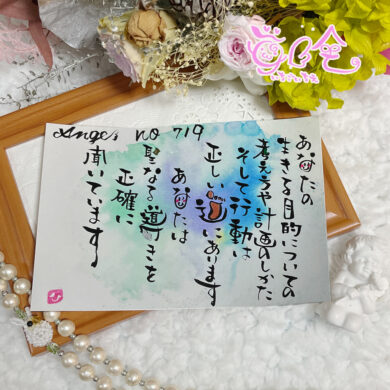 Angel no 719
あなたの
生きる目的についての
考え方や計画のしかた
そして行動は
正しい道にあります
あなたは
聖なる導きを
正確に
聞いています